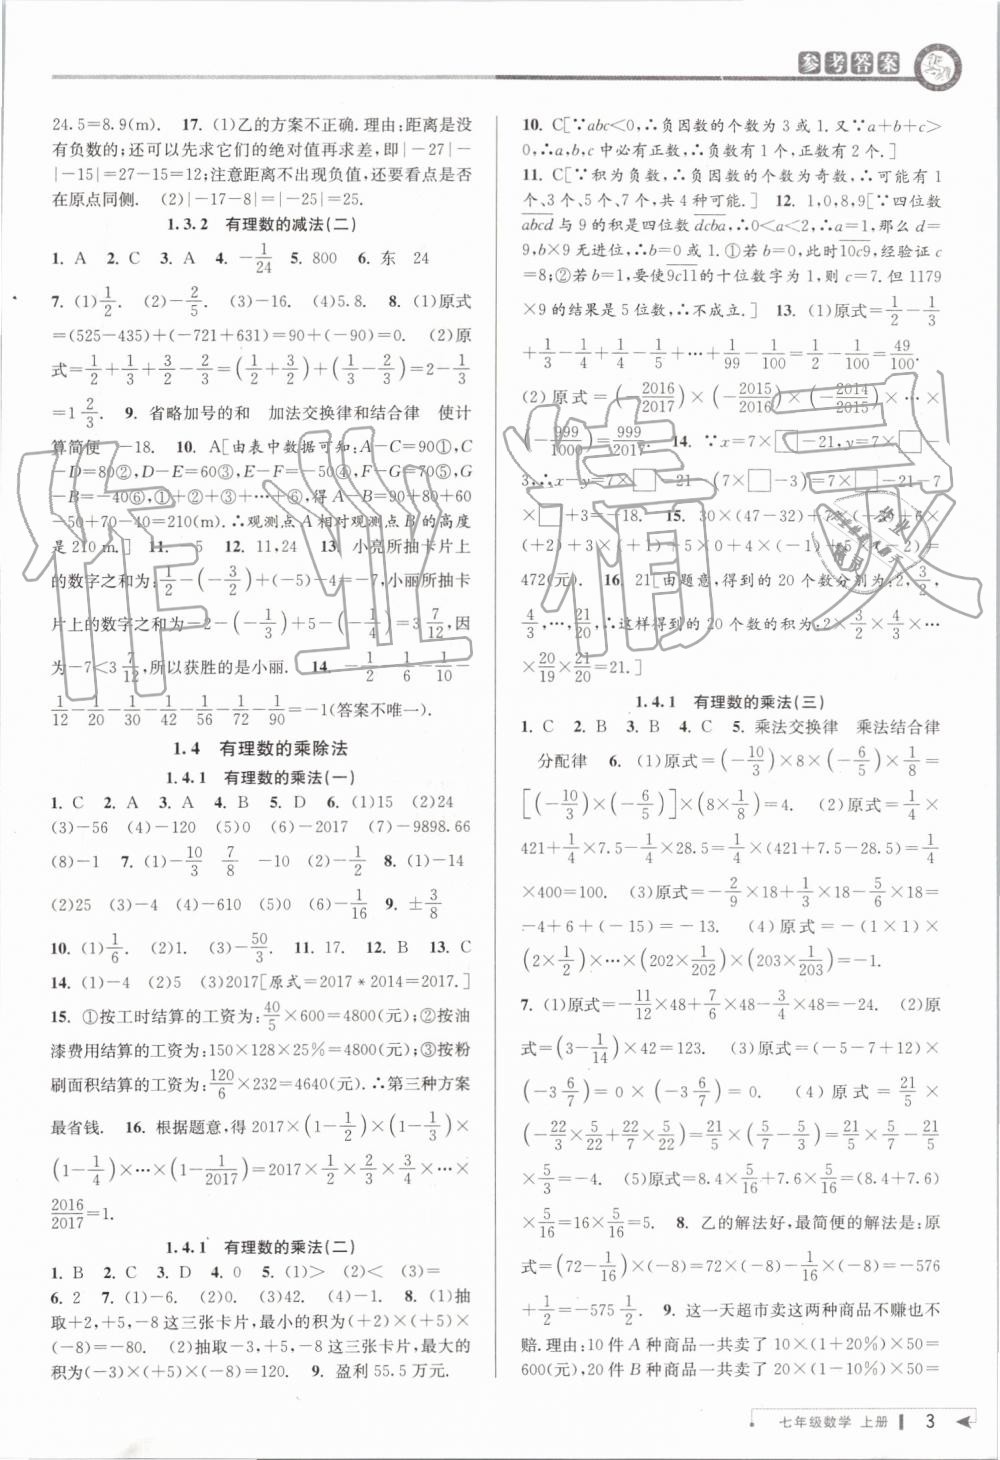 参考答案
24.5=8.9(m). 17. (1)乙的方案不正确.理由:距离是没
有负数的;还可以先求它们的绝对值再求差,即|-27|-
|-15|=27-15=12;注意距离不出现负值,还要看点是否
在原点同侧. (2)|-17-8|=|-25|=25.
1.3.2 有理数的减法(二)
1. A 2. C 3. A 4. -1/24 5. 800 6. 东 24
7. (1)1/2. (2)-2/5. (3)-16. (4)5.8. 8. (1)原式
=(525-435)+(-721+631)=90+(-90)=0. (2)原
式=1/2+1/3+3/2-2/3=(1/2+3/2)+(1/3-2/3)=2-1/3
=1 2/3. 9. 省略加号的和 加法交换律和结合律 使计
算简便 -18. 10. A[由表中数据可知:A-C=90①,C
-D=80②,D-E=60③,E-F=-50④,F-G=70⑤,G
-B=-40⑥,①+②+③+…+⑥,得 A-B=90+80+60
-50+70-40=210(m).∴观测点 A 相对观测点 B 的高度
是 210 m.] 11. -5 12. 11,24 13. 小亮所抽卡片上
的数字之和为:1/2-(-3/2)+(-5)-4=-7,小丽所抽卡
片上的数字之和为-2-(-1/3)+5-(-1/4)=3 7/12,因
为-7<3 7/12,所以获胜的是小丽. 14. -1/2-1/6-1/10-
1/12-1/20-1/30-1/42-1/56-1/72-1/90=-1(答案不唯一).
1.4 有理数的乘除法
1.4.1 有理数的乘法(一)
1. C 2. A 3. A 4. B 5. D 6. (1)15 (2)24
(3)-56 (4)-120 (5)0 (6)-2017 (7)-9898.66
(8)-1 7. (1)-10/3 7/8 -10 (2)-1/2 8. (1)-14
(2)25 (3)-4 (4)-610 (5)0 (6)-1/16 9. ±3/8
10. (1)1/6. (2)1. (3)-50/3. 11. 17. 12. B 13. C
14. (1)-4 (2)5 (3)2017[原式=2017*2014=2017.]
15. ①按工时结算的工资为:40/5×600=4800(元);②按油
漆费用结算的工资为:150×128×25%=4800(元);③按粉
刷面积结算的工资为:120/6×232=4640(元).∴第三种方案
最省钱. 16. 根据题意,得 2017×(1-1/2)×(1-1/3)×
(1-1/4)×…×(1-1/2017)=2017×1/2×2/3×3/4×…×
2016/2017=1.
1.4.1 有理数的乘法(二)
1. B 2. C 3. D 4. 0 5. (1)> (2)< (3)=
6. 2 7. (1)-6. (2)0. (3)42. (4)-1. 8. (1)抽
取+2,+5,-8 这三张卡片,最小的积为(+2)×(+5)×
(-8)=-80. (2)抽取-3,+5,-8 这三张卡片,最大的
积为(-3)×(+5)×(-8)=120. 9. 盈利 55.5 万元.
10. C[∵abc<0,∴负因数的个数为 3 或 1.又∵a+b+c>
0,∴a,b,c 中必有正数,∴负数有 1 个,正数有 2 个.]
11. C[∵积为负数,∴负因数的个数为奇数,∴可能有 1
个、3 个、5 个、7 个,共 4 种可能.] 12. 1,0,8,9[∵四位数
abcd 与 9 的积是四位数 dcba,∴0<a<2,∴a=1,那么 d=
9,b×9 无进位,∴b=0 或 1.①若 b=0,此时 10c9,经验证 c
=8;②若 b=1,要使 9c11 的十位数字为 1,则 c=7.但 1179
×9 的结果是 5 位数,∴不成立.] 13. (1)原式=1/2-1/3
+1/3-1/4+1/4-1/5+…+1/99-1/100=1/2-1/100=49/100.
(2)原式=(-2016/2017)×(-2015/2016)×(-2014/2015)×…×
(-999/1000)=999/2017. 14. ∵x=7×□-21,y=7×(□-
3),∴x-y=7×□-21-(7×□-3)=7×□-21-7
×□+3=-18. 15. 30×(47-32)+7×(-5)+6×
(+2)+3×(+1)+5×0+4×(-1)+5×(-2)=
472(元). 16. 21[由题意,得到的 20 个数分别为:2,3/2,
4/3,…,21/20,∴这样得到的 20 个数的积为:2×3/2×4/3×…
×20/19×21/20=21.]
1.4.1 有理数的乘法(三)
1. C 2. B 3. B 4. C 5. 乘法交换律 乘法结合律
分配律 6. (1)原式=(-10/3)×8×(-6/5)×1/8=
[(-10/3)×(-6/5)]×(8×1/8)=4. (2)原式=1/4×
421+1/4×7.5-1/4×28.5=1/4×(421+7.5-28.5)=1/4
×400=100. (3)原式=-2/9×18+1/3×18-5/6×18=
-4+6+(-15)=-13. (4)原式=-(1×1)×
(2×1/2)×…×(202×1/202)×(203×1/203)=-1.
7. (1)原式=-11/12×48+7/6×48-3/4×48=-24. (2)原
式=(3-1/14)×42=123. (3)原式=(-5-7+12)×
(-3 6/7)=0×(-3 6/7)=0. (4)原式=21/5×
(-22/3×5/22+22/7×5/22)=21/5×(5/7-5/3)=21/5×5/7-21/5
×5/3=-4. (5)原式=8.4×5/16+7.6×5/16=(8.4+7.6)
×5/16=16×5/16=5. 8. 乙的解法好,最简便的解法是:原
式=(72-1/16)×(-8)=72×(-8)-1/16×(-8)=-576
+1/2=-575 1/2. 9. 这一天超市卖这两种商品不赚也不
赔.理由:10 件 A 种商品一共卖了 10×(1+20%)×50=
600(元),20 件 B 种商品一共卖了 20×(1-10%)×50=
七年级数学 上册 3
作业精灵